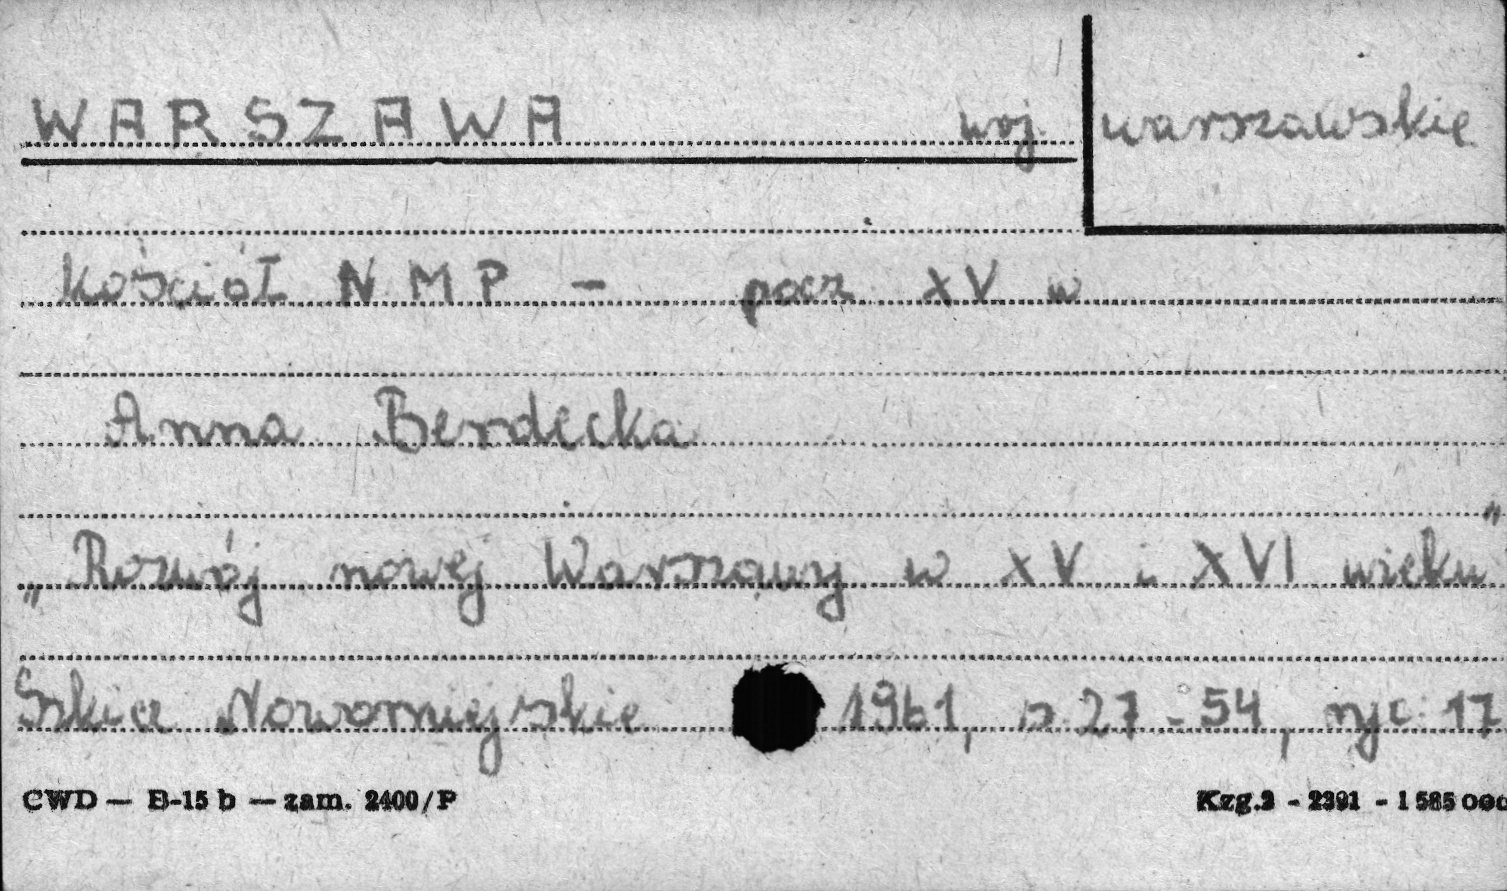 WARSZAWA woj. warszawskie
Kościół NMP - pocz XV w
Anna Berdecka
„Rozwój nowej Warszawy w XV i XVI wieku"
Szkice Nowomiejskie 1961, s. 27-54, ryc. 17
CWD — B-15 b — zam. 2400/P
Kzg.3 - 2391 - 1 585 000